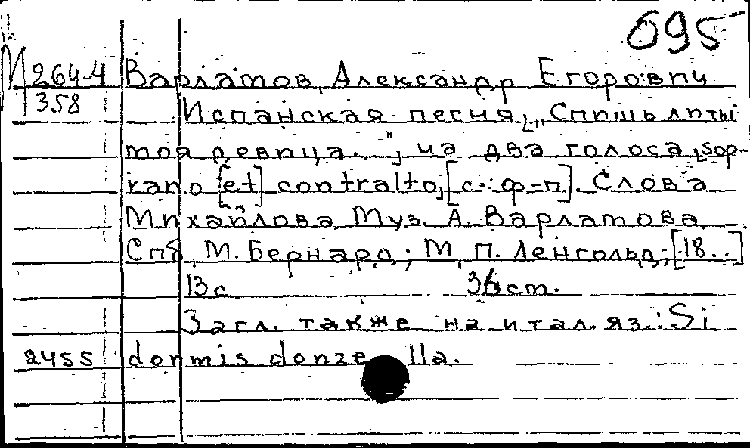 695
М 264-4 Варламов, Александр Егорович
358 Испанская песня, "Спишь ли ты
моя девица...", на два голоса, sop-
rano [et] contralto, [с ф-п]. Слова
Михайлова Муз. А. Варламова
Спб М. Бернард; М. П. Ленгольд; [18..]
13с 36 cm.
Загл. также на итал. яз.: Si
2455 dormis donzella.